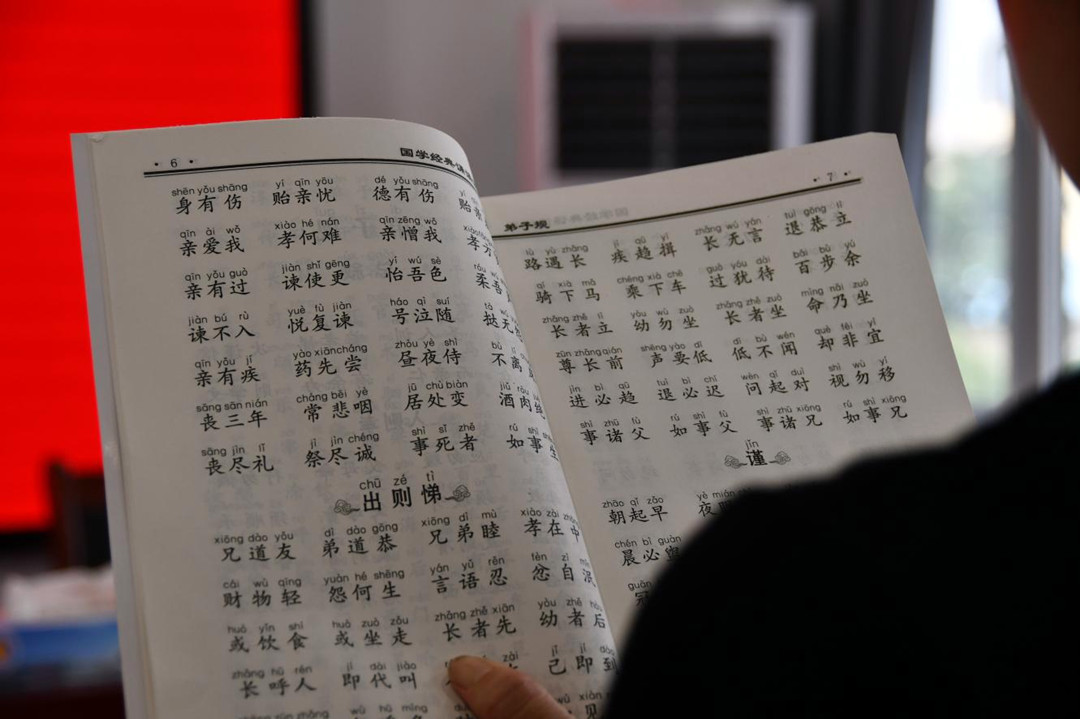 · 6 ·
国学经典
shēn yǒu shāng yí qīn yōu dé yǒu shāng yí
身有伤 贻亲忧 德有伤 贻
qīn ài wǒ xiào hé nán qīn zēng wǒ xiào
亲爱我 孝何难 亲憎我 孝方
qīn yǒu guò jiàn shǐ gēng yí wú sè róu
亲有过 谏使更 怡吾色 柔吾
jiàn bú rù yuè fù jiàn háo qì suí tà
谏不入 悦复谏 号泣随 挞无
qīn yǒu jí yào xiān cháng zhòu yè shì bù
亲有疾 药先尝 昼夜侍 不离
sāng sān nián cháng bēi yè jū chù biàn jiǔ ròu
丧三年 常悲咽 居处变 酒肉
sāng jìn lǐ jì jìn chéng shì sǐ zhě rú shì
丧尽礼 祭尽诚 事死者 如事生
chū zé tì
出则悌
xiōng dào yǒu dì dào gōng xiōng dì mù xiào zài zhōng
兄道友 弟道恭 兄弟睦 孝在中
cái wù qīng yuàn hé shēng yán yǔ rěn fèn zì mǐn
财物轻 怨何生 言语忍 忿自泯
huò yǐn shí huò zuò zǒu zhǎng zhě xiān yòu zhě hòu
或饮食 或坐走 长者先 幼者后
zhǎng hū rén jí dài jiào zài jǐ jí dào
长呼人 即代叫 己即到
· 7 ·
弟子规
lù yù zhǎng jí qū yī zhǎng wú yán tuì gōng lì
路遇长 疾趋揖 长无言 退恭立
qí xià mǎ chéng xià chē guò yóu dài bǎi bù yú
骑下马 乘下车 过犹待 百步余
zhǎng zhě lì yòu wù zuò zhǎng zhě zuò mìng nǎi zuò
长者立 幼勿坐 长者坐 命乃坐
zūn zhǎng qián shēng yào dī dī bù wén què fēi yí
尊长前 声要低 低不闻 却非宜
jìn bì qū tuì bì chí wèn qǐ duì shì wù yí
进必趋 退必迟 问起对 视勿移
shì zhū fù rú shì fù shì zhū xiōng rú shì xiōng
事诸父 如事父 事诸兄 如事兄
jǐn
谨
zhāo qǐ zǎo yè mián
朝起早 夜眠
chén bì guàn
晨必盥
guān
冠